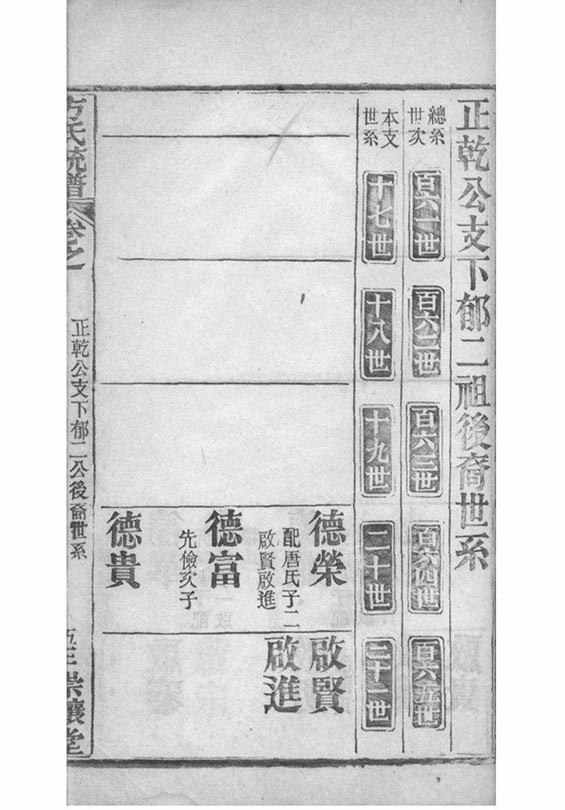 正乾公支下郁二祖後裔世系
總系
世次
百六一世
百六二世
百六三世
百六四世
百六五世
本支
世系
十七世
十八世
十九世
二十世
二十一世
德榮
配唐氏子二
啟賢啟進
德富
先儉次子
德貴
啟賢
啟進
方氏統譜
卷之一
正乾公支下郁二公後裔世系
崇讓堂